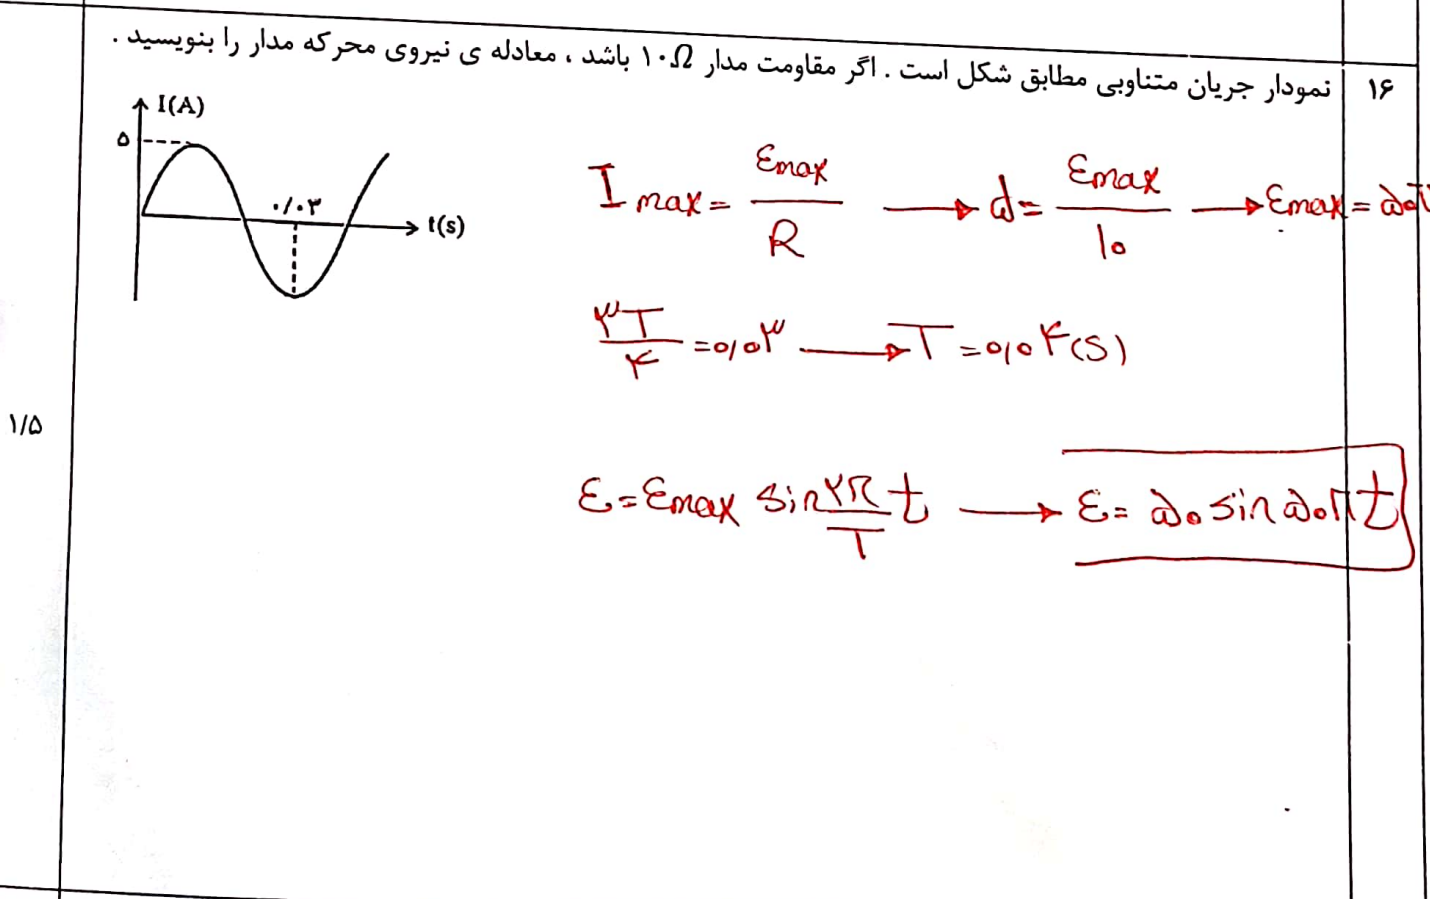 ۱۶ نمودار جریان متناوبی مطابق شکل است . اگر مقاومت مدار ۱۰Ω باشد ، معادله ی نیروی محرکه مدار را بنویسید .
I(A)
۵
۰/۰۳
t(s)
I max = εmax / R → ۵ = εmax / ۱۰ → εmax = ۵۰
۳T / ۴ = ۰٫۰۳ → T = ۰٫۰۴ (S)
۱/۵
ε = εmax sin ۲π / T t → ε = ۵۰ sin ۵۰πt